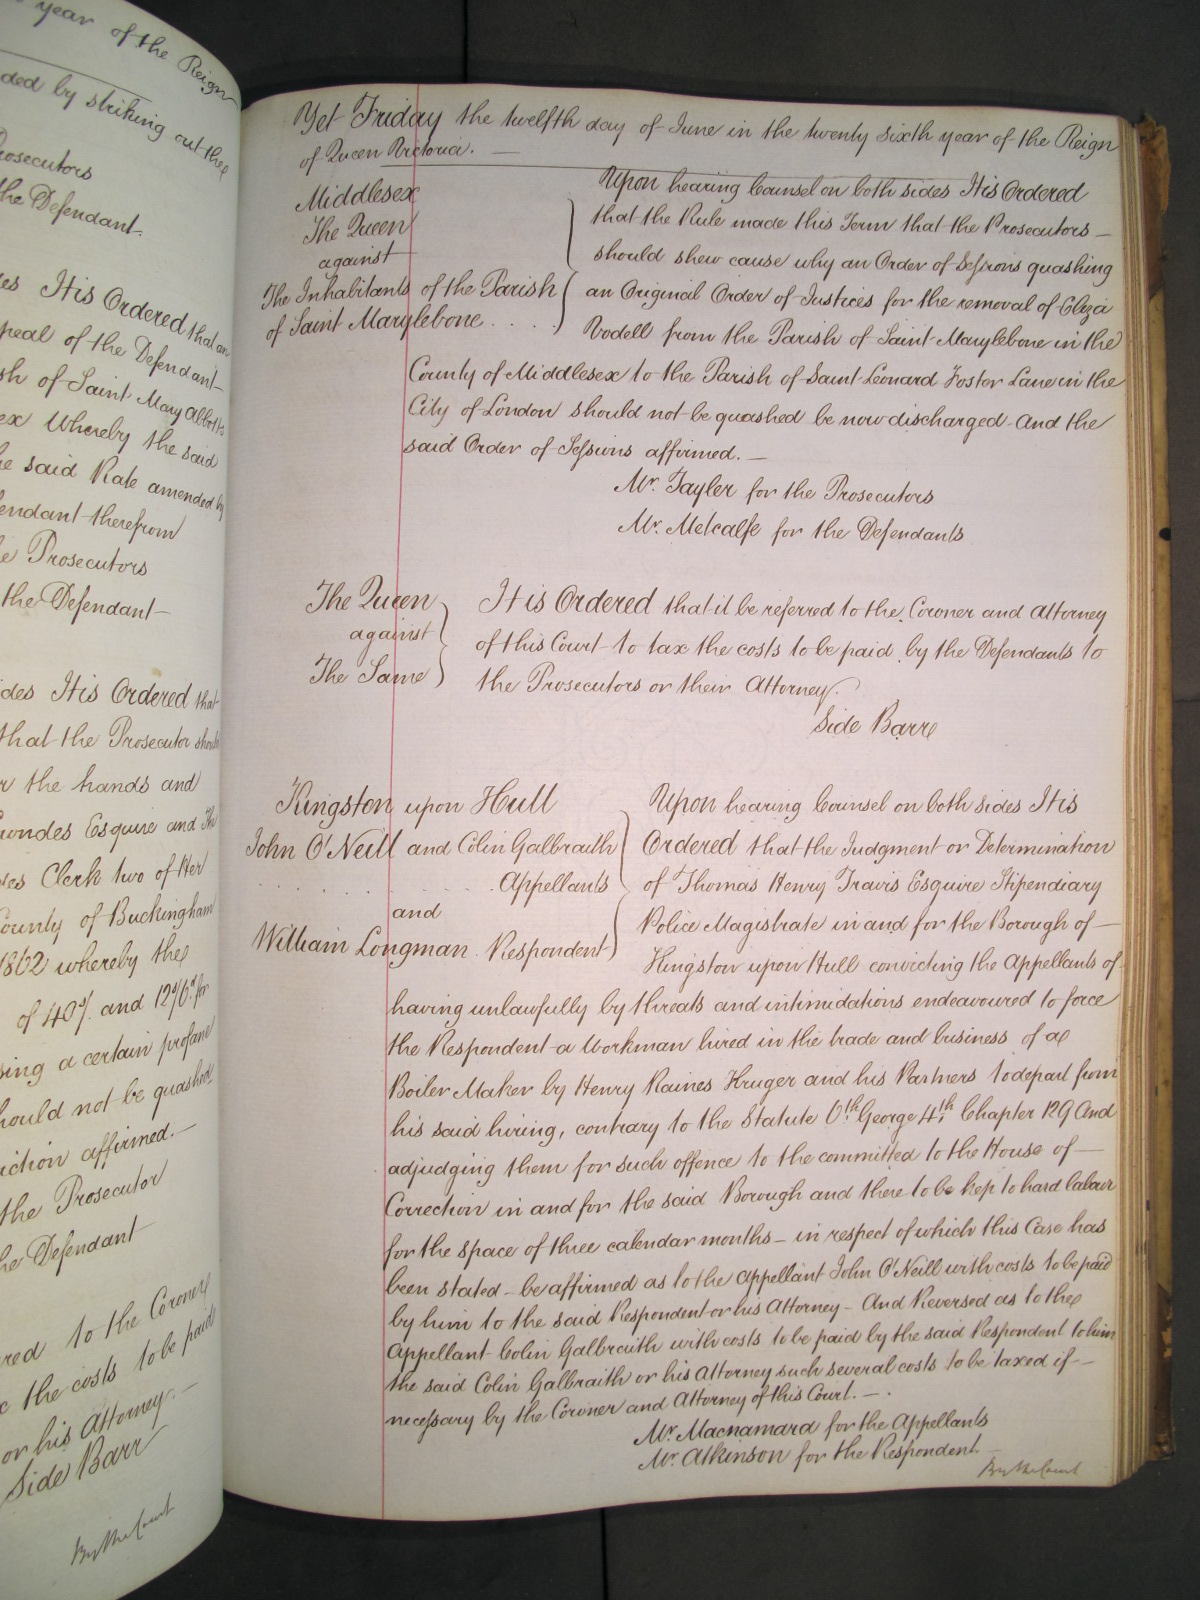 year of the Reign
ded by striking out the
Prosecutors
the Defendant
It is Ordered that an
peal of the Defendant
sh of Saint Mary Abbotts
ex Whereby the said
he said Rate amended by
endant therefrom
Prosecutors
the Defendant
ides It is Ordered that
that the Prosecutor should
the hands and
Esquire and The
Clerk two of Her
County of Buckingham
1862 whereby the
of 40/. and 12/6 for
sing a certain profane
hould not be quashed
affirmed.
the Prosecutor
he Defendant
red to the Coroner
the costs to be paid
or his Attorney.
Side Barr
By the Court
Yet Friday the twelfth day of June in the twenty sixth year of the Reign
of Queen Victoria.
Middlesex
The Queen
against
The Inhabitants of the Parish
of Saint Marylebone
Upon hearing Counsel on both sides It is Ordered
that the Rule made this Term that the Prosecutors
should shew cause why an Order of Sessions quashing
an Original Order of Justices for the removal of Eliza
Vodell from the Parish of Saint Marylebone in the
County of Middlesex to the Parish of Saint Leonard Foster Lane in the
City of London should not be quashed be now discharged And the
said Order of Sessions affirmed.
Mr. Tayler for the Prosecutors
Mr. Metcalfe for the Defendants
The Queen
against
The Same
It is Ordered that it be referred to the Coroner and Attorney
of this Court to tax the costs to be paid by the Defendants to
the Prosecutors or their Attorney.
Side Barre
Kingston upon Hull
John O'Neill and Colin Galbraith
Appellants
and
William Longman Respondent
Upon hearing Counsel on both sides It is
Ordered that the Judgment or Determination
of Thomas Henry Travis Esquire Stipendiary
Police Magistrate in and for the Borough of
Kingston upon Hull convicting the Appellants of
having unlawfully by threats and intimidations endeavoured to force
the Respondent a Workman hired in the trade and business of a
Boiler Maker by Henry Raines Kruger and his Partners to depart from
his said hiring, contrary to the Statute 6th George 4th Chapter 129 And
adjudging them for such offence to the committed to the House of
Correction in and for the said Borough and there to be kep to hard labour
for the space of three calendar months - in respect of which this Case has
been stated - be affirmed as to the Appellant John O'Neill with costs to be paid
by him to the said Respondent or his Attorney - And Reversed as to the
Appellant Colin Galbraith with costs to be paid by the said Respondent to him
the said Colin Galbraith or his Attorney such several costs to be taxed if
necessary by the Coroner and Attorney of this Court.
Mr. Macnamara for the Appellants
Mr. Atkinson for the Respondent
By the Court